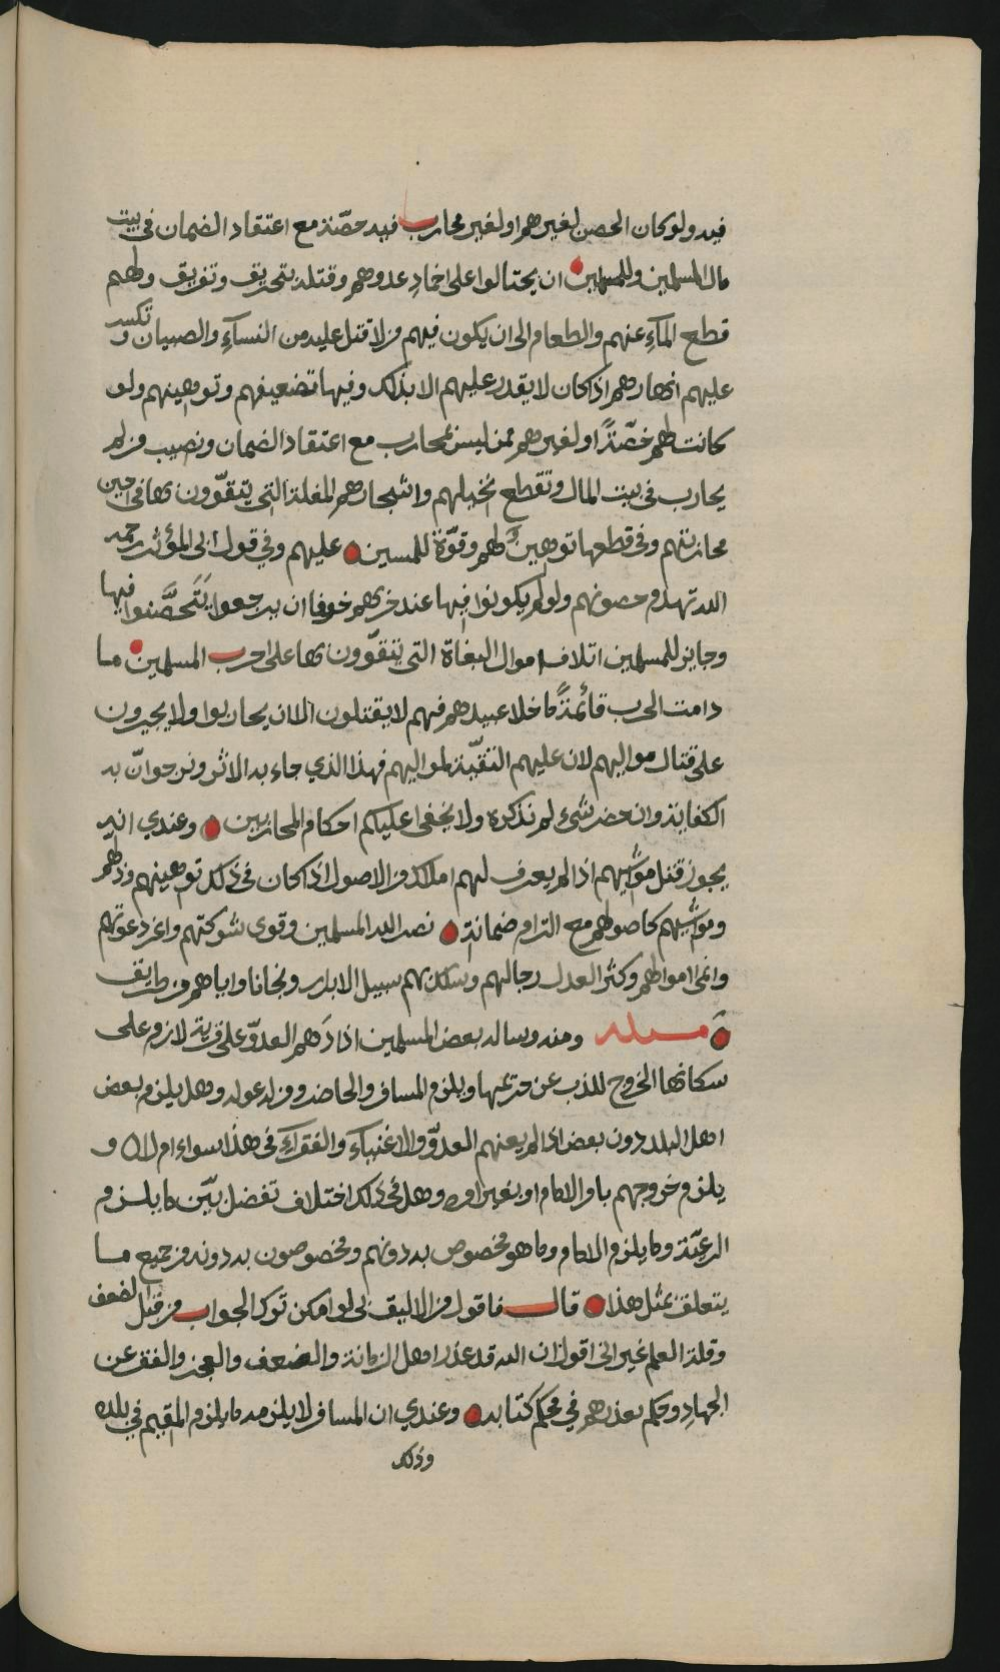 فيه ولو كان الحصن لغيرهم او لغير محارب فيه حصّنه مع اعتقاد الضمان في بيت
مال المسلمين وللمسلمين ان يحتالوا على اخماد عدوهم وقتله بتحريق وتغريق ولهم
قطع الماءِ عنهم والطعام والى ان يكون فيهم من لا قتل عليه من النساءِ والصبيان وتكسر
عليهم انهارهم اذا كان لا يقدر عليهم الا بذلك وفيها تضعيفهم وتوهينهم ولو
كانت لهم خصّةً او لغيرهم ممن ليس بمحارب مع اعتقاد الضمان ونصيب من لم
يحارب في بيت المال وتقطع نخيلهم واشجارهم المغلة التي يتقوّون بها في حين
محاربتهم وفي قطعها توهين لهم وقوّة للمسلمين عليهم وفي قول ابى المؤثر رحمه
الله تهدم حصونهم ولو لم يكونوا فيها عند خربهم خوفا ان يرجعوا يَتَحصَّنوا فيها
وجايز للمسلمين اتلاف اموال البغاة التي يتقوّون بها على حرب المسلمين ما
دامت الحرب قائمةً ما خلا عبيدهم فهم لا يقتلون الا ان يحاربوا ولا يجبرون
على قتال مواليهم لان عليهم التقيّة لمواليهم فهذا الذي جاء به الاثر ونرجو انّ به
الكفاية وان حضر شيء لم نذكره ولا يخفى عليكم احكام المحاربين وعندي انه
يجوز قتل مواشيهم اذا لم يعرف لهم املاك من الاصول اذا كان في ذلك توهينهم وذلهم
ومواشيهم كاصولهم مع التزام ضمانة نصر الله المسلمين وقوى شوكتهم واعز دعوتهم
وانمى اموالهم وكثر العدل رجالهم وسلك بهم سبيل الابرار ونجانا واياهم من طرايق
مسئلة ومنه وساله بعض المسلمين اذا دَهم العدوّ على قرية لازم على
سكانها الخروج للذب عن حريمها ويلزم المسافر والحاضر ومن له عوله وهل يلزم بعض
اهل البلد دون بعض اذا لم يعنهم العدوّ والاغنياءِ والفقراءِ في هذا سواء ام لا و
يلزم خروجهم بامر الامام او بغير امره وهل في ذلك اختلاف تفضل بيّن ما يلزم
الرعيّة وما يلزم الامام وما هو مخصوص به دونهم ومخصوصون به دونه من جميع ما
يتعلق بمثل هذا قال فاقول من الاليق بى لو امكن ترك الجواب من قبل الضعف
وقلة العلم غير انى اقول ان الله قد عذر اهل الزمانة والضعف والعجز والفقر عن
الجهاد وحكم بعذرهم في محكم كتابه وعندي ان المسافر لا يلزمه ما يلزم المقيم في بلده
وذلك